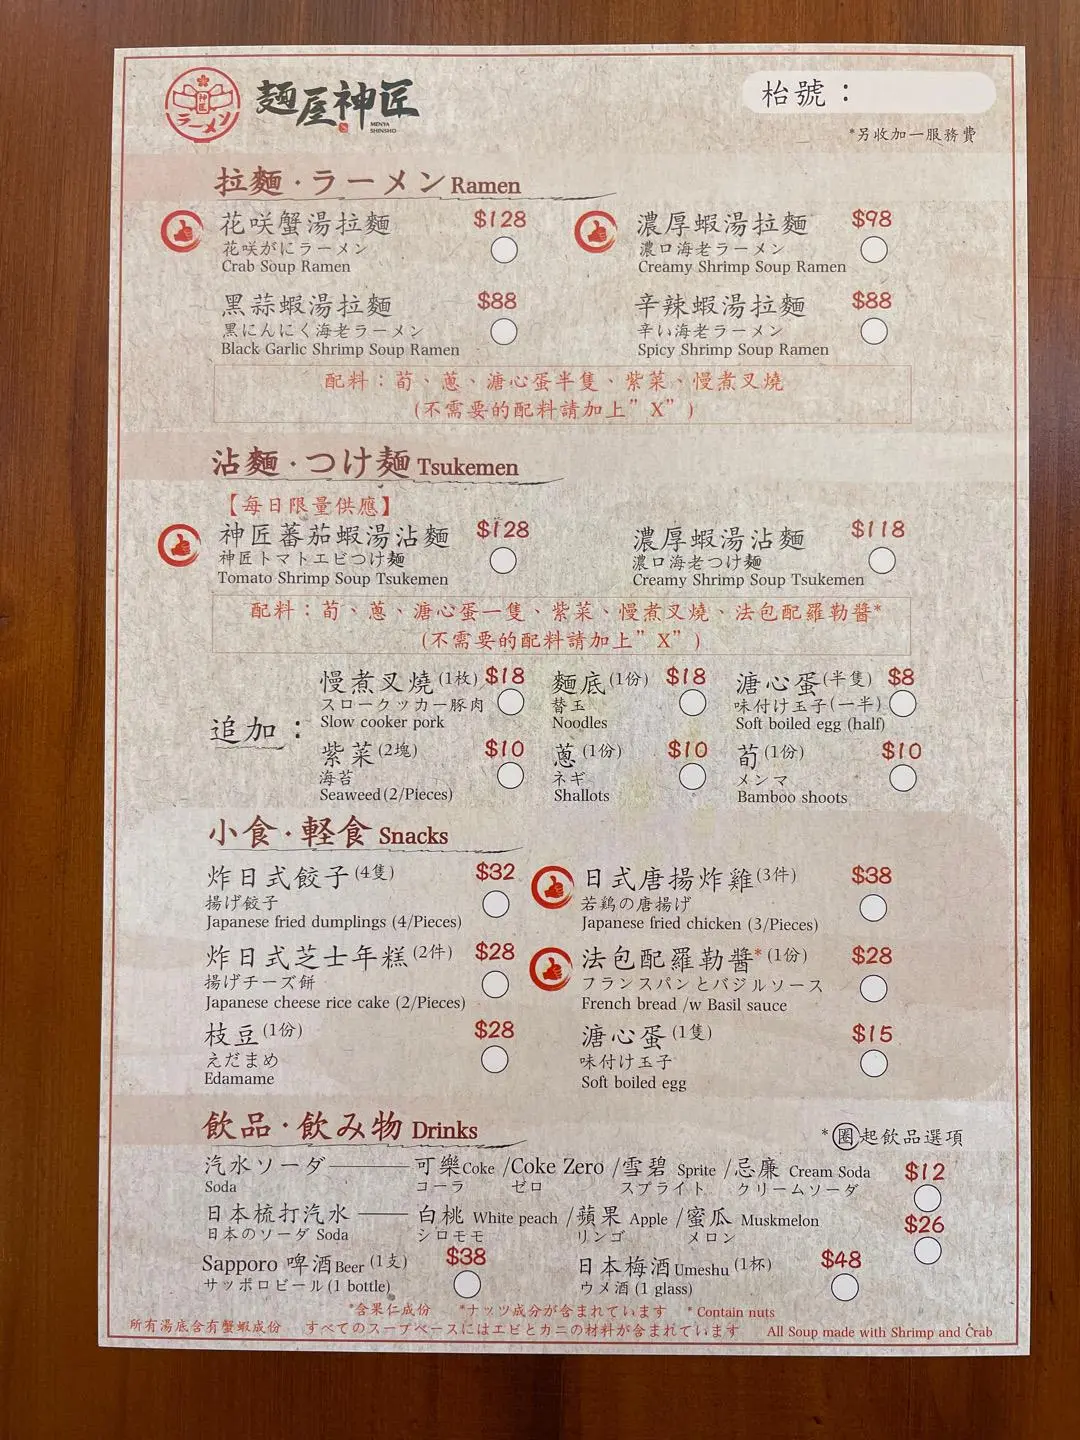 神匠
ラーメン
麵屋神匠
MENYA
SHINSHO
枱號：
*另收加一服務費
拉麵·ラーメン Ramen
花咲蟹湯拉麵 $128
花咲がにラーメン
Crab Soup Ramen
濃厚蝦湯拉麵 $98
濃口海老ラーメン
Creamy Shrimp Soup Ramen
黑蒜蝦湯拉麵 $88
黒にんにく海老ラーメン
Black Garlic Shrimp Soup Ramen
辛辣蝦湯拉麵 $88
辛い海老ラーメン
Spicy Shrimp Soup Ramen
配料：荀、蔥、溏心蛋半隻、紫菜、慢煮叉燒
(不需要的配料請加上"X")
沾麵·つけ麺 Tsukemen
【每日限量供應】
神匠蕃茄蝦湯沾麵 $128
神匠トマトエビつけ麺
Tomato Shrimp Soup Tsukemen
濃厚蝦湯沾麵 $118
濃口海老つけ麺
Creamy Shrimp Soup Tsukemen
配料：荀、蔥、溏心蛋一隻、紫菜、慢煮叉燒、法包配羅勒醬*
(不需要的配料請加上"X")
追加：
慢煮叉燒(1枚) $18
スロークッカー豚肉
Slow cooker pork
麵底(1份) $18
替玉
Noodles
溏心蛋(半隻) $8
味付け玉子(一半)
Soft boiled egg (half)
紫菜(2塊) $10
海苔
Seaweed(2/Pieces)
蔥(1份) $10
ネギ
Shallots
荀(1份) $10
メンマ
Bamboo shoots
小食·軽食 Snacks
炸日式餃子(4隻) $32
揚げ餃子
Japanese fried dumplings (4/Pieces)
日式唐揚炸雞(3件) $38
若鶏の唐揚げ
Japanese fried chicken (3/Pieces)
炸日式芝士年糕(2件) $28
揚げチーズ餅
Japanese cheese rice cake (2/Pieces)
法包配羅勒醬*(1份) $28
フランスパンとバジルソース
French bread /w Basil sauce
枝豆(1份) $28
えだまめ
Edamame
溏心蛋(1隻) $15
味付け玉子
Soft boiled egg
飲品·飲み物 Drinks
*圈起飲品選項
汽水ソーダ 可樂Coke /Coke Zero /雪碧 Sprite /忌廉 Cream Soda $12
Soda コーラ ゼロ スプライト クリームソーダ
日本梳打汽水 白桃 White peach /蘋果 Apple /蜜瓜 Muskmelon $26
日本のソーダ Soda シロモモ リンゴ メロン
Sapporo 啤酒Beer (1支) $38
サッポロビール(1 bottle)
日本梅酒Umeshu (1杯) $48
ウメ酒 (1 glass)
*含果仁成份 *ナッツ成分が含まれています * Contain nuts
所有湯底含有蟹蝦成份 すべてのスープベースにはエビとカニの材料が含まれています All Soup made with Shrimp and Crab